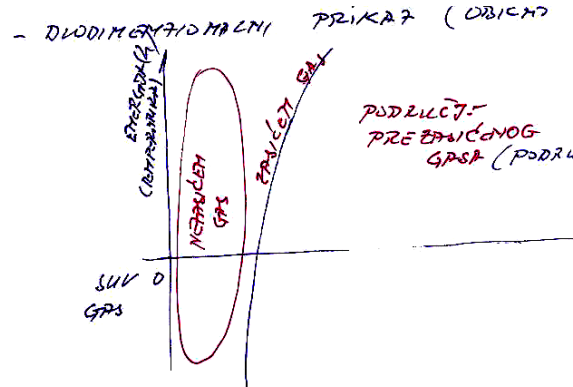 - DVODIMENZIONALNI PRIKAZ (OBIČNO
ENERGIJA(
(TEMPERATURA)
NEZASIĆEN
GAS
ZASIĆEN GAS
PODRUČJE
PREZASIĆENOG
GASA (PODRU
SUV 0
GAS